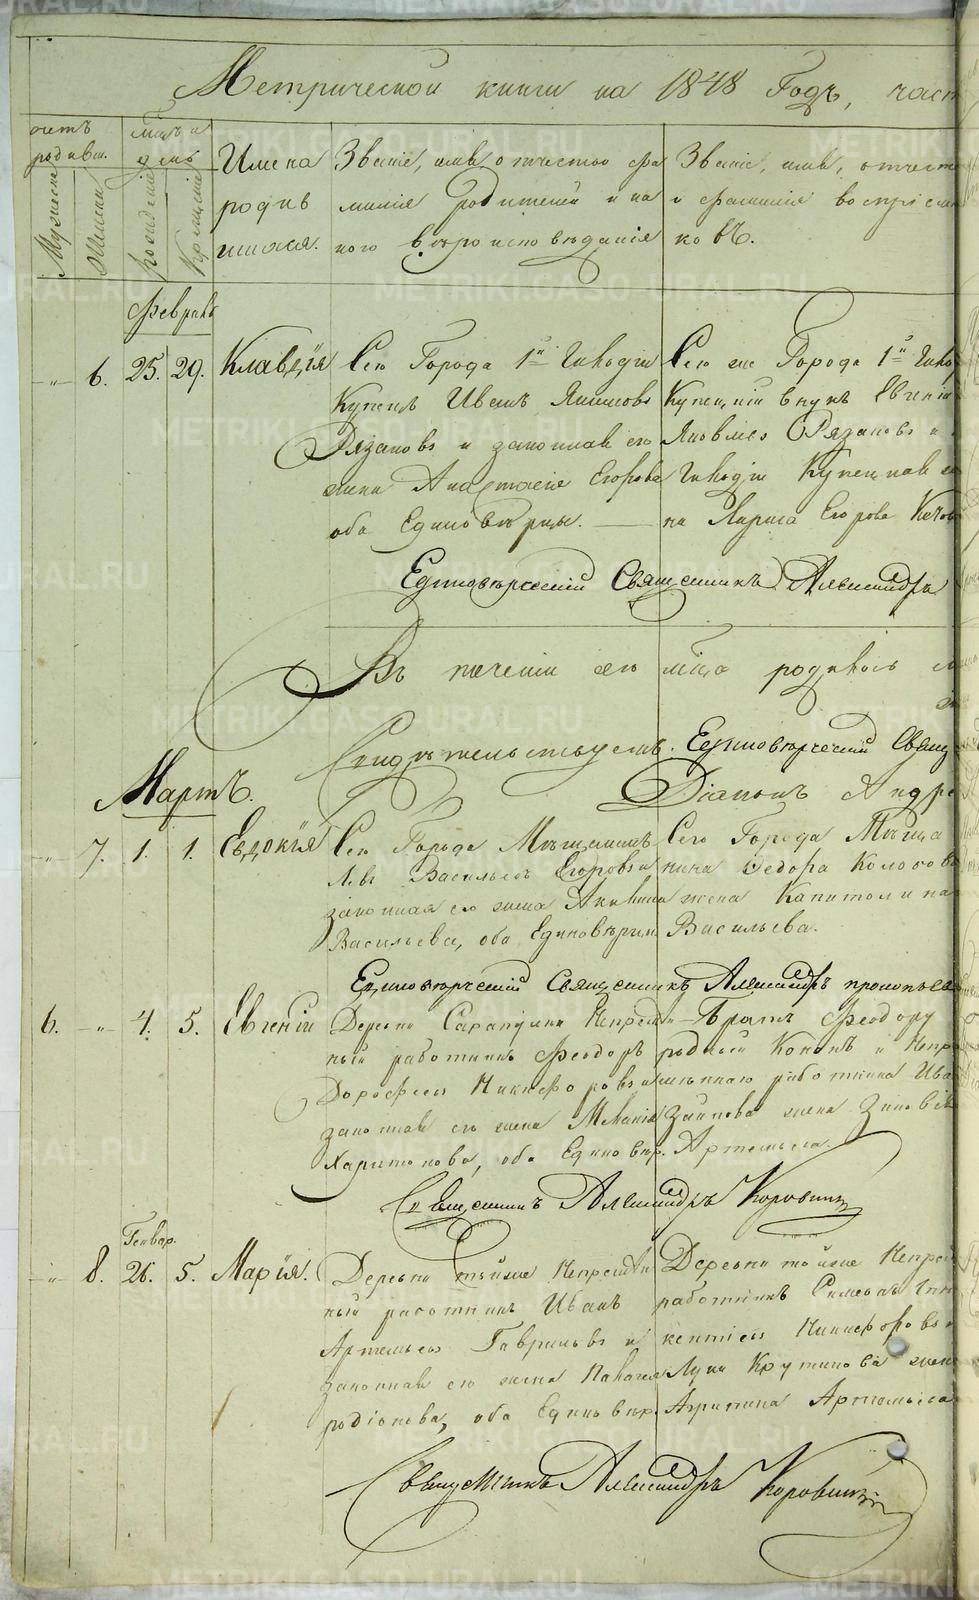 Метрической книги на 1848 Годъ, част
счетъ родивш.
Мужеска
Женска
мѣсяцъ и день
рожденіе
крещеніе
Имена родив шихся.
Званіе, имя, отчество фа
милія родителей и ка
кого вѣроисповѣданія
Званіе, имя, отчест
и фамилія воспріемни
ковъ.
Февраль
6. 25. 29. Клавдія
Сего Города 1й Гильдіи
Купецъ Иванъ Якимовъ
Рязановъ и законная его
жена Анастасія Егорова
оба Единовѣрцы.
Сего же Города 1й Гиль
Купеческій внукъ Евгеній
Яковлевъ Рязановъ и
Гильдіи Купеческая
на Лариса Егорова
Единовѣрческій Священникъ Александръ
Въ теченіи сего мѣсяца родилось
Свидѣтельствуемъ. Единовѣрческій Свящ
Діаконъ Андре
Мартъ.
7. 1. 1. Евдокія
Сего Города Мѣщанинъ
Васильевъ Егоровъ и
законная его жена Акилина
Васильева, оба Единовѣрцы
Сего Города Мѣща
нина Федора Колосова
жена Капитолина
Васильева.
Единовѣрческій Священникъ Александръ
6. 4. 5. Евгеній
Деревни Сарапулки Непремѣн
ный работникъ Феодоръ
Дорофеевъ Никифоровъ и
законная его жена Меланія
Харитонова, оба Единовѣр.
Братъ Феодору
родной Кононъ и Непре
мѣннаго работника Ива
жена Зиновія
Артемьева.
Священникъ Александръ Коровинъ
Генвар.
8. 26. 5. Марія.
Деревни тойже Непремѣн
ный работникъ Иванъ
Артемьевъ Гавриловъ и
законная его жена Пелагея
родіонова, оба Единовѣр.
Деревни тойже Непрем
работникъ Симеонъ Инно
кентіевъ Никифоровъ и
Луки Крутикова жена
Агрипина Артемьева
Священникъ Александръ Коровинъ
METRIKI.GASO-URAL.RU